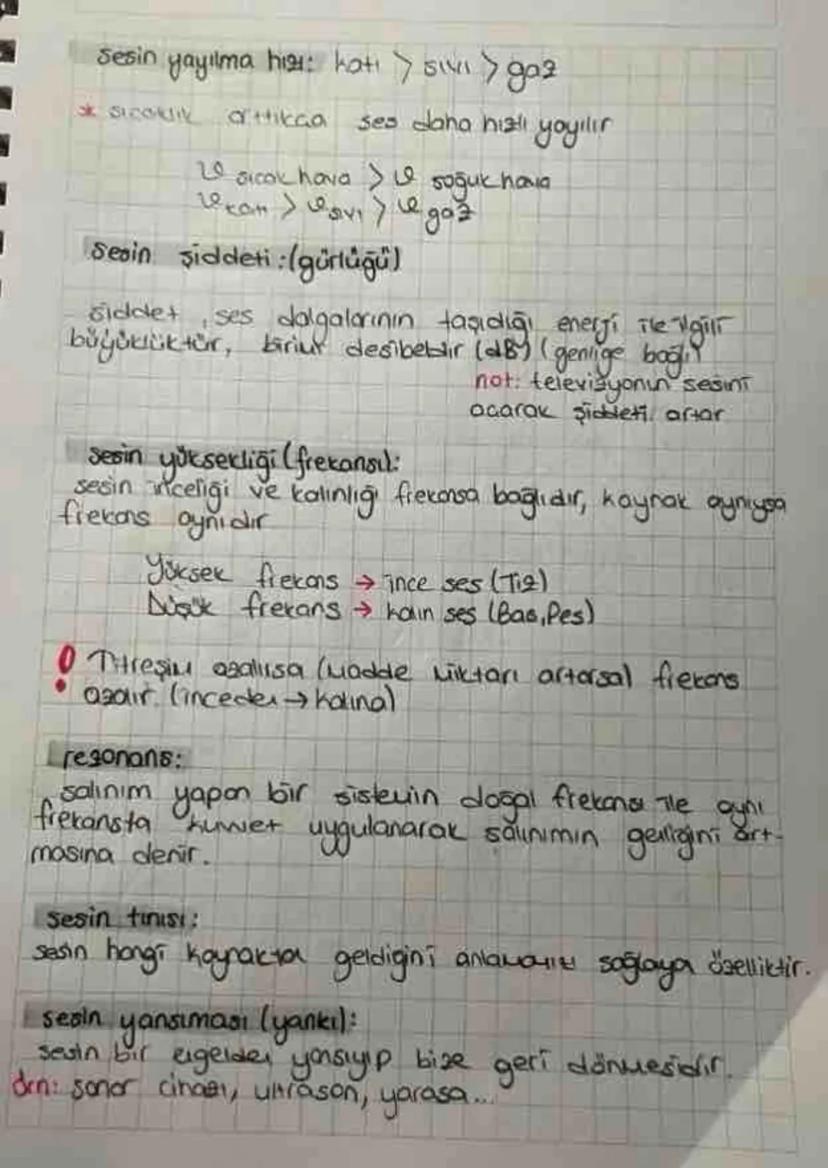 sesin yayılma hızı: katı > sıvı > gaz
* sıcaklık arttıkça ses daha hızlı yayılır
v sıcak hava > v soğuk hava
v katı > v sıvı > v gaz
sesin şiddeti: (gürlüğü)
şiddet, ses dalgalarının taşıdığı enerji ile ilgili
büyüklüktür, birimi desibeldir (dB) (genliğe bağlı)
not: televizyonun sesini
açarak şiddeti artar
sesin yüksekliği (frekansı):
sesin inceliği ve kalınlığı frekansa bağlıdır, kaynak aynıysa
frekans aynıdır
Yüksek frekans → ince ses (Tiz)
Düşük frekans → kalın ses (Bas, Pes)
! Titreşim azalırsa (madde miktarı artarsa) frekans
azalır. (inceden → kalına)
rezonans:
salınım yapan bir sistemin doğal frekansı ile aynı
frekansta kuvvet uygulanarak salınımın genliğini art-
masına denir.
sesin tınısı:
sesin hangi kaynaktan geldiğini anlamamızı sağlayan özelliktir.
sesin yansıması (yankı):
sesin bir engelden yansıyıp bize geri dönmesidir.
örn: sonar cihazı, ultrason, yarasa...